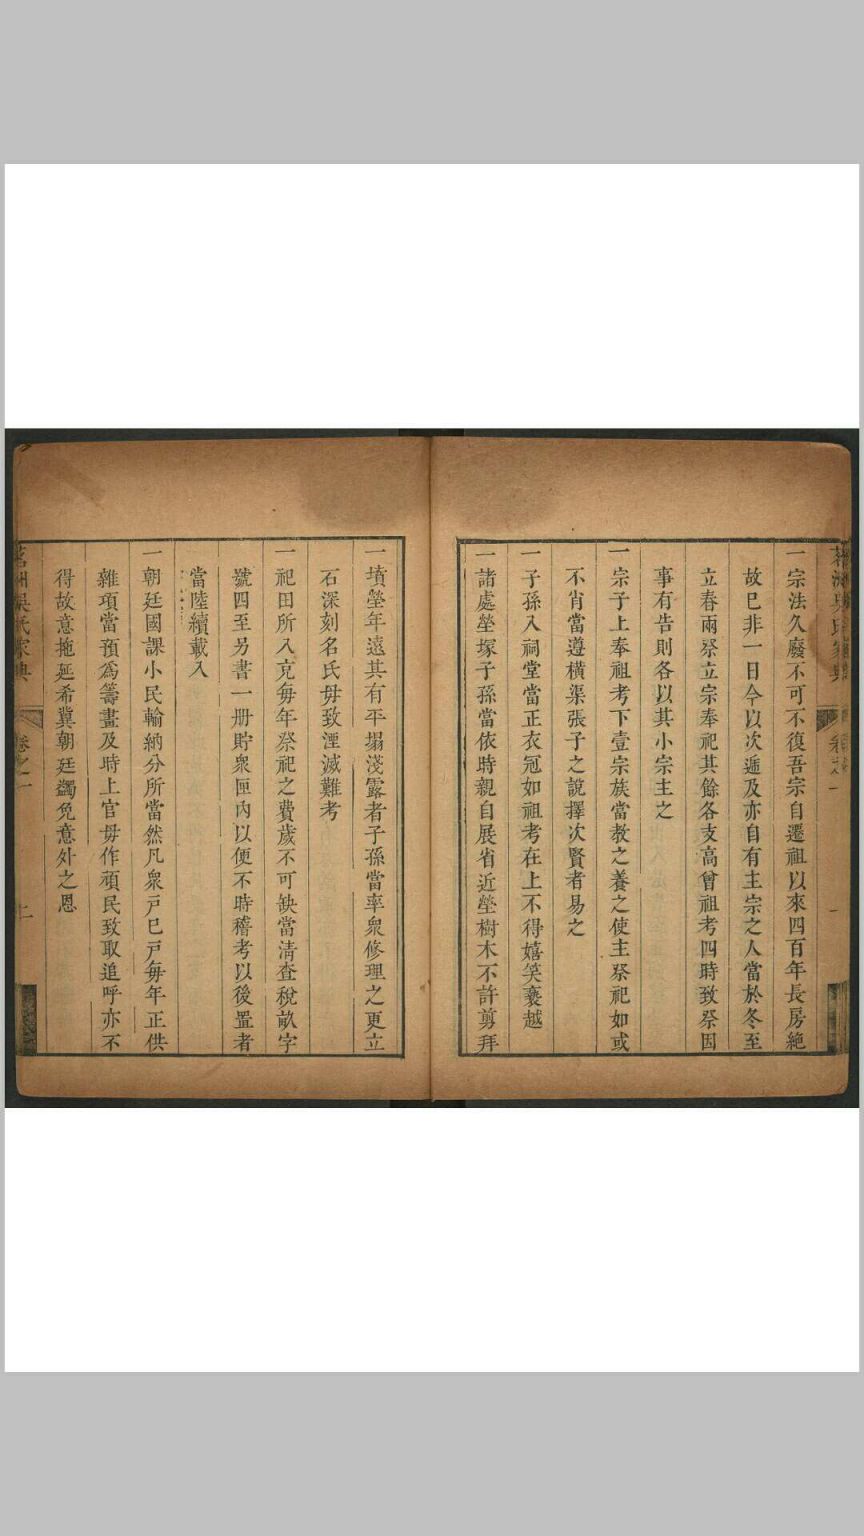 一宗法久廢不可不復吾宗自遷祖以來四百年長房絶
故巳非一日今以次遞及亦自有主宗之人當於冬至
立春兩祭立宗奉祀其餘各支高曾祖考四時致祭因
事有告則各以其小宗主之
一宗子上奉祖考下壹宗族當教之養之使主祭祀如或
不肖當遵橫渠張子之說擇次賢者易之
一子孫入祠堂當正衣冠如祖考在上不得嬉笑褻越
一諸處塋塚子孫當依時親自展省近塋樹木不許剪拜
一墳塋年遠其有平塌淺露者子孫當率衆修理之更立
石深刻名氏毋致湮滅難考
一祀田所入克每年祭祀之費歲不可缺當清查稅畝字
號四至另書一册貯衆匣內以便不時稽考以後置者
當陸續載入
一朝廷國課小民輸納分所當然凡衆戸巳戸每年正供
雜項當預爲籌畫及時上官毋作頑民致取追呼亦不
得故意拖延希冀朝廷蠲免意外之恩
茗洲吳氏家典
卷之一